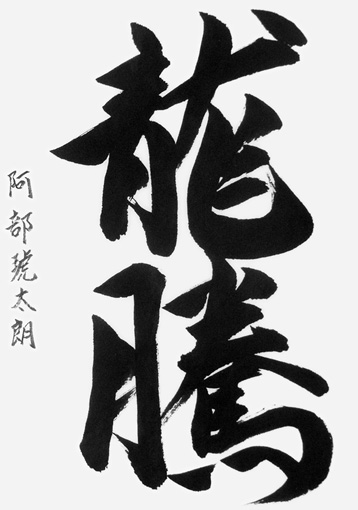 龍騰
阿部號太朗